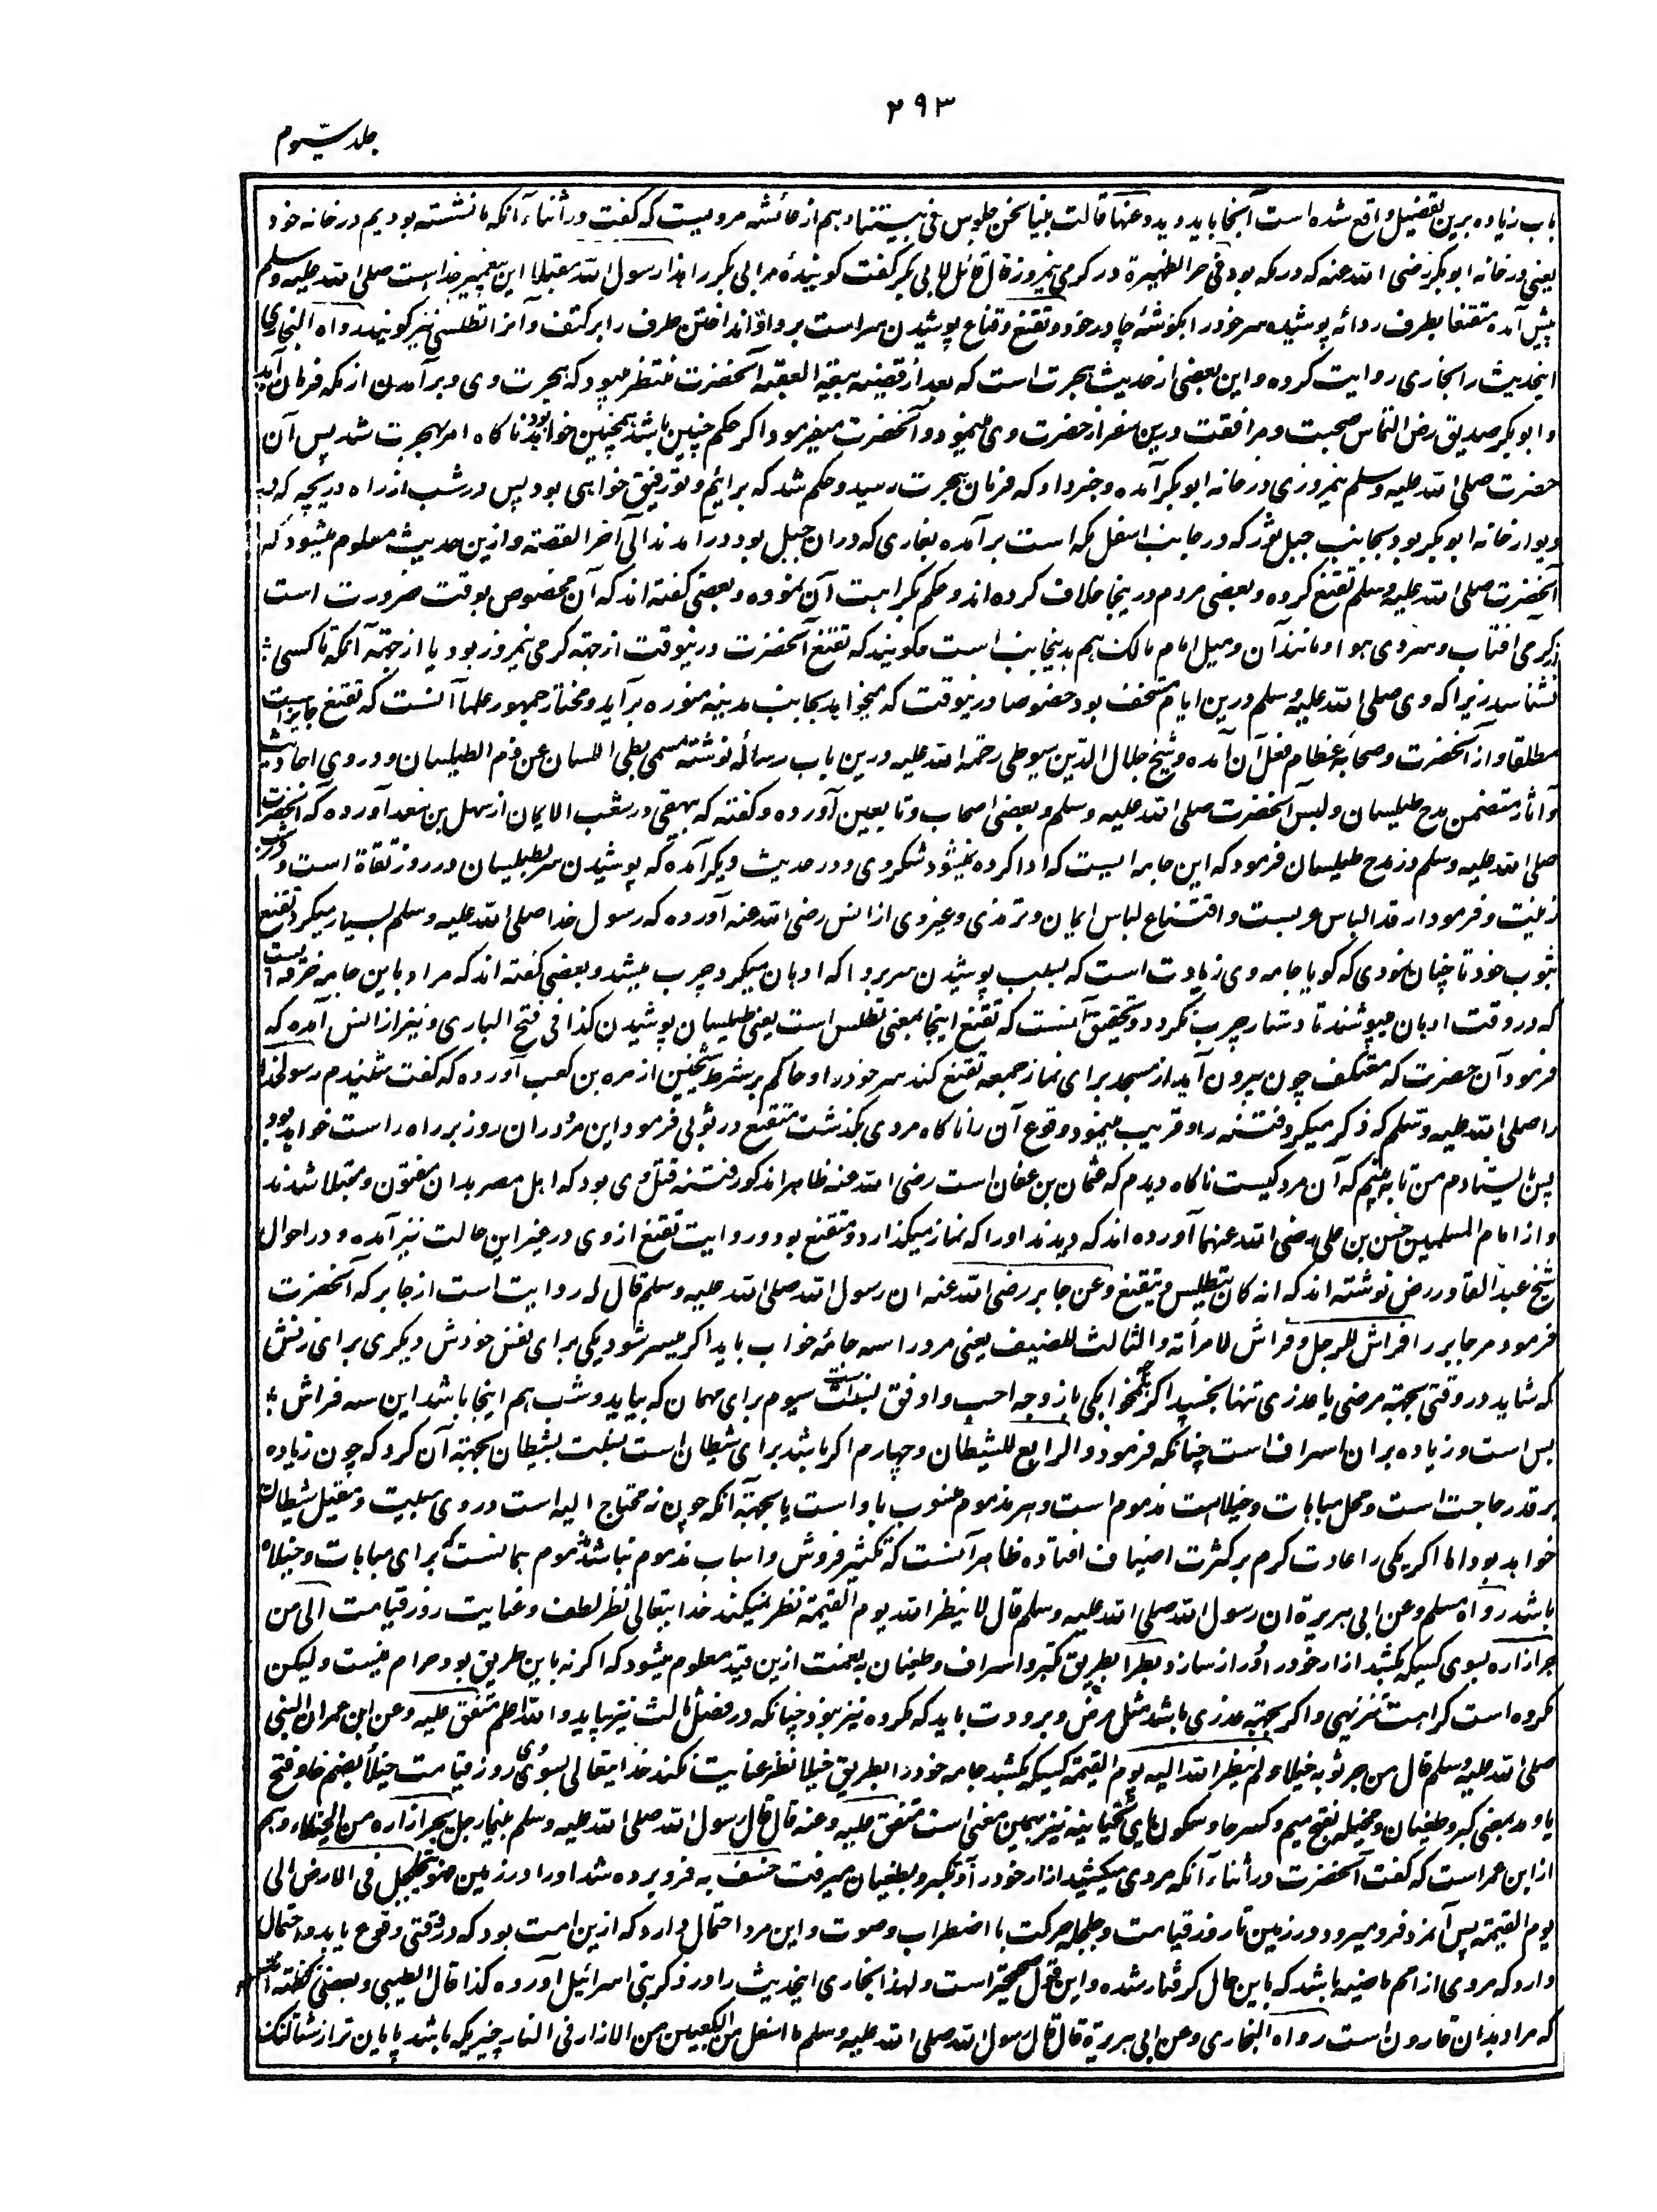 ۲۹۳
جلد سیوم
باب زیاده برین تفصیل واقع شده است آنجا باید دید وعنها قالت بینا نحن جلوس فی بیتنا وهم از عائشه مرویست که گفت در اثناء آنکه ما نشسته بودیم در خانه خود
یعنی در خانه ابو بکر رضی الله عنه که در مکه بود فی حر الظهیرة در گرمی نیمروز قال قائل لابی بکر گفت گوینده مر ابی بکر را هذا رسول الله مقبلا این پیغمبر خداست صلی الله علیه وسلم
پیش آمده متقنعا بطرف ردائه پوشیده سر خود را بگوشهٔ چادر خود و تقنع وقناع پوشیدن سر است بردا و انداختن طرف را بر کتف و آنرا تطلس نیز گویند رواه البخاری
اینحدیث را بخاری روایت کرده و این بعضی از حدیث هجرت است که بعد از قضیه بیعة العقبه آنحضرت منتظر میبود که هجرت وی و برآمدن از مکه فرمان آید
و ابو بکر صدیق رض التماس صحبت و مرافقت درین سفر از حضرت وی مینمود و آنحضرت میفرمود اگر حکم چنین باشد همچنین خواهد بود ناگاه امر بهجرت شد پس آن
حضرت صلی الله علیه وسلم نیمروزی در خانه ابو بکر آمده و خبر داد که فرمان هجرت رسید و حکم شد که برائیم و تو رفیق خواهی بود پس در شب از راه دریچه که در
دیوار خانه ابو بکر بود بجانب جبل ثور که در جانب اسفل مکه است برآمده بغاری که دران جبل بود درآمدند الی آخر القصة و ازین حدیث معلوم میشود که
آنحضرت صلی الله علیه وسلم تقنع کرده و بعضی مردم در ینجا خلاف کرده اند و حکم بکراهت آن نموده و بعضی گفته اند که آن مخصوص بوقت ضرورت است
از گرمی آفتاب و سردی هوا و مانند آن و میل امام مالک هم بدینجانب است میگویند که تقنع آنحضرت درینوقت از جهة گرمی نیمروز بود یا از جهة آنکه تا کسی
نشناسد زیرا که وی صلی الله علیه وسلم درین ایام مستخف بود خصوصا درینوقت که میخواهد بجانب مدینه منوره برآید و مختار جمهور علما آنست که تقنع جایز است
مطلقا و از آنحضرت و صحابه عظام فعل آن آمده و شیخ جلال الدین سیوطی رحمة الله علیه درین باب رسائله نوشته مسمی بطی اللسان عن ذم الطیلسان و در وی احادیث
و آثار متضمن مدح طیلسان و لبس آنحضرت صلی الله علیه وسلم و بعضی اصحاب و تابعین آورده و گفته که بیهقی در شعب الایمان از سهل بن سعد آورده که آنحضرت
صلی الله علیه وسلم در مدح طیلسان فرمود که این جامه ایست که ادا کرده نمیشود شکر وی و در حدیث دیگر آمده که پوشیدن سر بطیلسان در روز تقاة است و در شب
زینت و فرمود ارتدا لباس عربست و اقتناع لباس ایمان و ترمذی و غیر وی از انس رضی الله عنه آورده که رسول خدا صلی الله علیه وسلم بسیار میکرد تقنع
بثوب خود تا چنان نمودی که گویا جامه وی زیادت است که بسبب پوشیدن سر بردا که ادهان میکرد چرب میشد و بعضی گفته اند که مراد باین جامه خرقه است
که در وقت ادهان میپوشند تا دستار چرب نگردد و تحقیق آنست که تقنع اینجا بمعنی تطلس است یعنی طیلسان پوشیدن کذا فی فتح الباری و نیز از انس آمده که
فرمود آن حضرت که معتکف چون بیرون آید از مسجد برای نماز جمعه تقنع کند سر خود را و حاکم بر شرط شیخین از مره بن کعب آورده که گفت شنیدم رسول خدا
را صلی الله علیه وسلم که ذکر میکرد فتنه را و قریب مینمود وقوع آن را ناگاه مردی بگذشت متقنع در ثوبی فرمود این مرد ران روز بر راه راست خواهد بود
پس ایستادم من تا به بینم که آن مرد کیست ناگاه دیدم که عثمان بن عفان است رضی الله عنه ظاهرا مذکور فتنه قتل وی بود که اهل مصر بدان مفتون و مبتلا شدند
و از امام المسلمین حسن بن علی رضی الله عنهما آورده اند که دیدند او را که نماز میگذارد و متقنع بود و روایت تقنع از وی در غیر این حالت نیز آمده و در احوال
شیخ عبد القادر رض نوشته اند که انه کان یتطیلس و یتقنع وعن جابر رضی الله عنه ان رسول الله صلی الله علیه وسلم قال له روایت است از جابر که آنحضرت
فرمود مر جابر را فراش للرجل وفراش لامرأته والثالث للضیف یعنی مرد را سه جامهٔ خواب باید اگر میسر شود یکی برای نفس خودش و یکی برای زنش
که شاید در وقتی بجهة مرضی یا عذری تنها بخسپد اگر چه همخوابگی با زوجه احب و اوفق بسنت است سیوم برای مهمان که بیاید و شب هم اینجا باشد این سه فراش
بس است و زیاده بران اسراف است چنانکه فرمود والرابع للشیطان و چهارم اگر باشد برای شیطان است نسبت بشیطان بجهة آن کرد که چون زیاده
بر قدر حاجت است و محل مباهات و خیلاست مذموم است و هر مذموم منسوب باو است یا بجهة آنکه چون نه محتاج الیه است در وی مبیت و مقیل شیطان
خواهد بود اما اگر یکی را عادت کرم بر کثرت اضیاف افتاده ظاهر آنست که تکثیر فروش و اسباب مذموم نباشد مذموم همانست که برای مباهات و خیلاء
باشد رواه مسلم وعن ابی هریرة ان رسول الله صلی الله علیه وسلم قال لا ینظر الله یوم القیمة نظر نمیکند خدا یتعالی نظر لطف و عنایت روز قیامت الی من
جر ازاره بسوی کسیکه بکشد ازار خود را و دراز سازد بطرا بطریق تکبر و اسراف و طغیان نعمت ازین قید معلوم میشود که اگر نه باین طریق بود حرام نیست و لیکن
مکروه است کراهت تنزیهی و اگر بجهة عذری باشد مثل مرض و برودت باید که مکروه نیز نبود چنانکه در فصل ثالث نیز بیاید والله اعلم متفق علیه وعن ابن عمر ان النبی
صلی الله علیه وسلم قال من جر ثوبه خیلاء لم ینظر الله الیه یوم القیمة کسیکه بکشد جامه خود را بطریق خیلا نظر عنایت نکند خدا یتعالی بسوی وی روز قیامت خیلا بضم خا و فتح
یا و مد بمعنی کبر و طغیان و مخیله بفتح میم و کسر خا و سکون یای تحتانیه نیز بهمین معنی است متفق علیه وعنه قال قال رسول الله صلی الله علیه وسلم بینما رجل یجر ازاره من الخیلاء وهم
از ابن عمر است که گفت آنحضرت در اثناء آنکه مردی میکشید ازار خود را از تکبر و بطغیان میرفت خسف به فرو برده شد او را در زمین فهو یتجلجل فی الارض الی
یوم القیمة پس آنمرد فرو میرود در زمین تا روز قیامت و جلجله حرکت با اضطراب و صوت و این مرد احتمال دارد که ازین امت بود که در وقتی وقوع یابد و احتمال
دارد که مردی از امم ماضیه باشد که باین حال گرفتار شده و این قول صحیحتر است و لهذا بخاری اینحدیث را در ذکر بنی اسرائیل آورده کذا قال الطیبی و بعضی گفته اند
که مراد بدان قارون است رواه البخاری وعن ابی هریرة قال قال رسول الله صلی الله علیه وسلم ما اسفل من الکعبین من الازار فی النار چیزیکه باشد پایان تر از شتالنگ